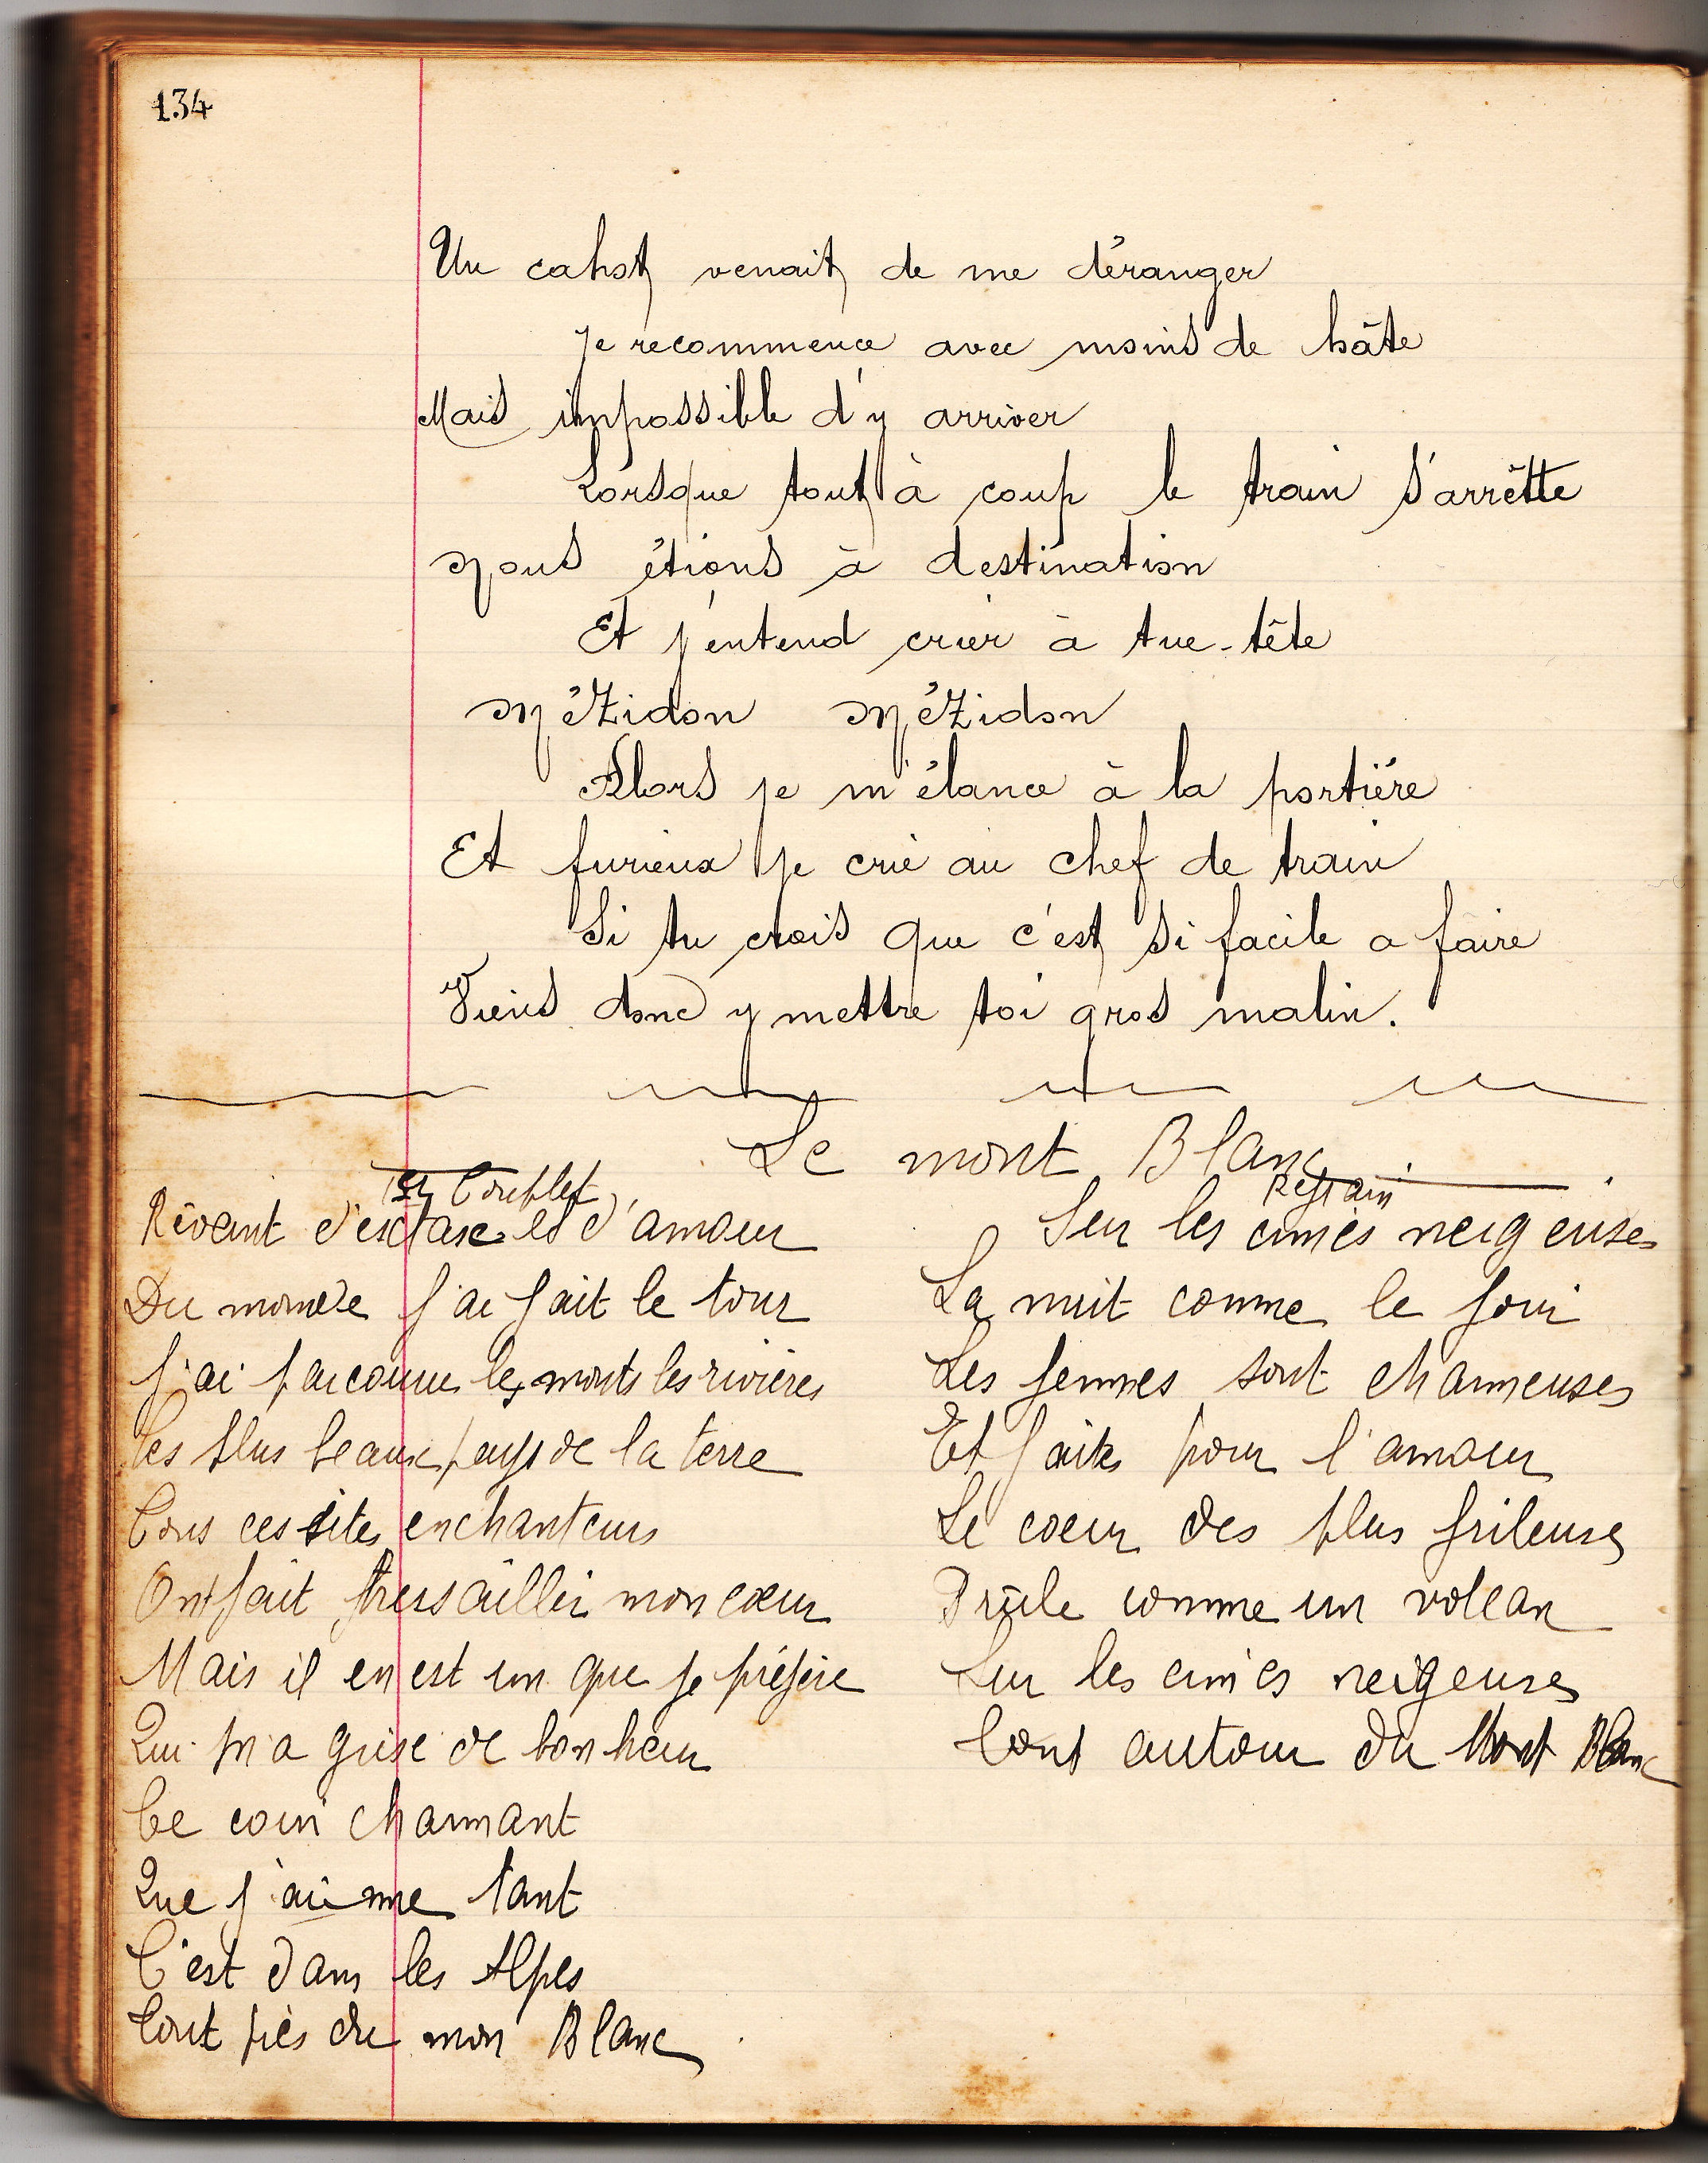 134
Un cahot venait de me déranger
Je recommence avec moins de hâte
Mais impossible d'y arriver
Lorsque tout à coup le train s'arrêtte
Nous étions à destination
Et j'entend crier à tue-tête
Mézidon Mézidon
Alors je m'élance à la portière
Et furieux je crie au chef de train
Si tu crois que c'est si facile a faire
Viens donc y mettre toi gros malin.
Le mont Blanc
1er Couplet
Rêvant d'extase et d'amour
Du monde j'ai fait le tour
J'ai parcouru les monts les rivières
Les plus beaux pays de la terre
Tous ces sites enchanteurs
Ont fait tressaillir mon cœur
Mais il en est un que je préfère
Qui m'a grisé de bonheur
Ce coin charmant
Que j'aime tant
C'est dans les Alpes
Tout près du mon Blanc
Refrain
Sur les cimes neigeuses
La nuit comme le jour
Les femmes sont charmeuses
Et faites pour l'amour
Le coeur des plus frileuses
Brûle comme un volcan
Sur les cimes neigeuses
Tout autour du Mont Blanc